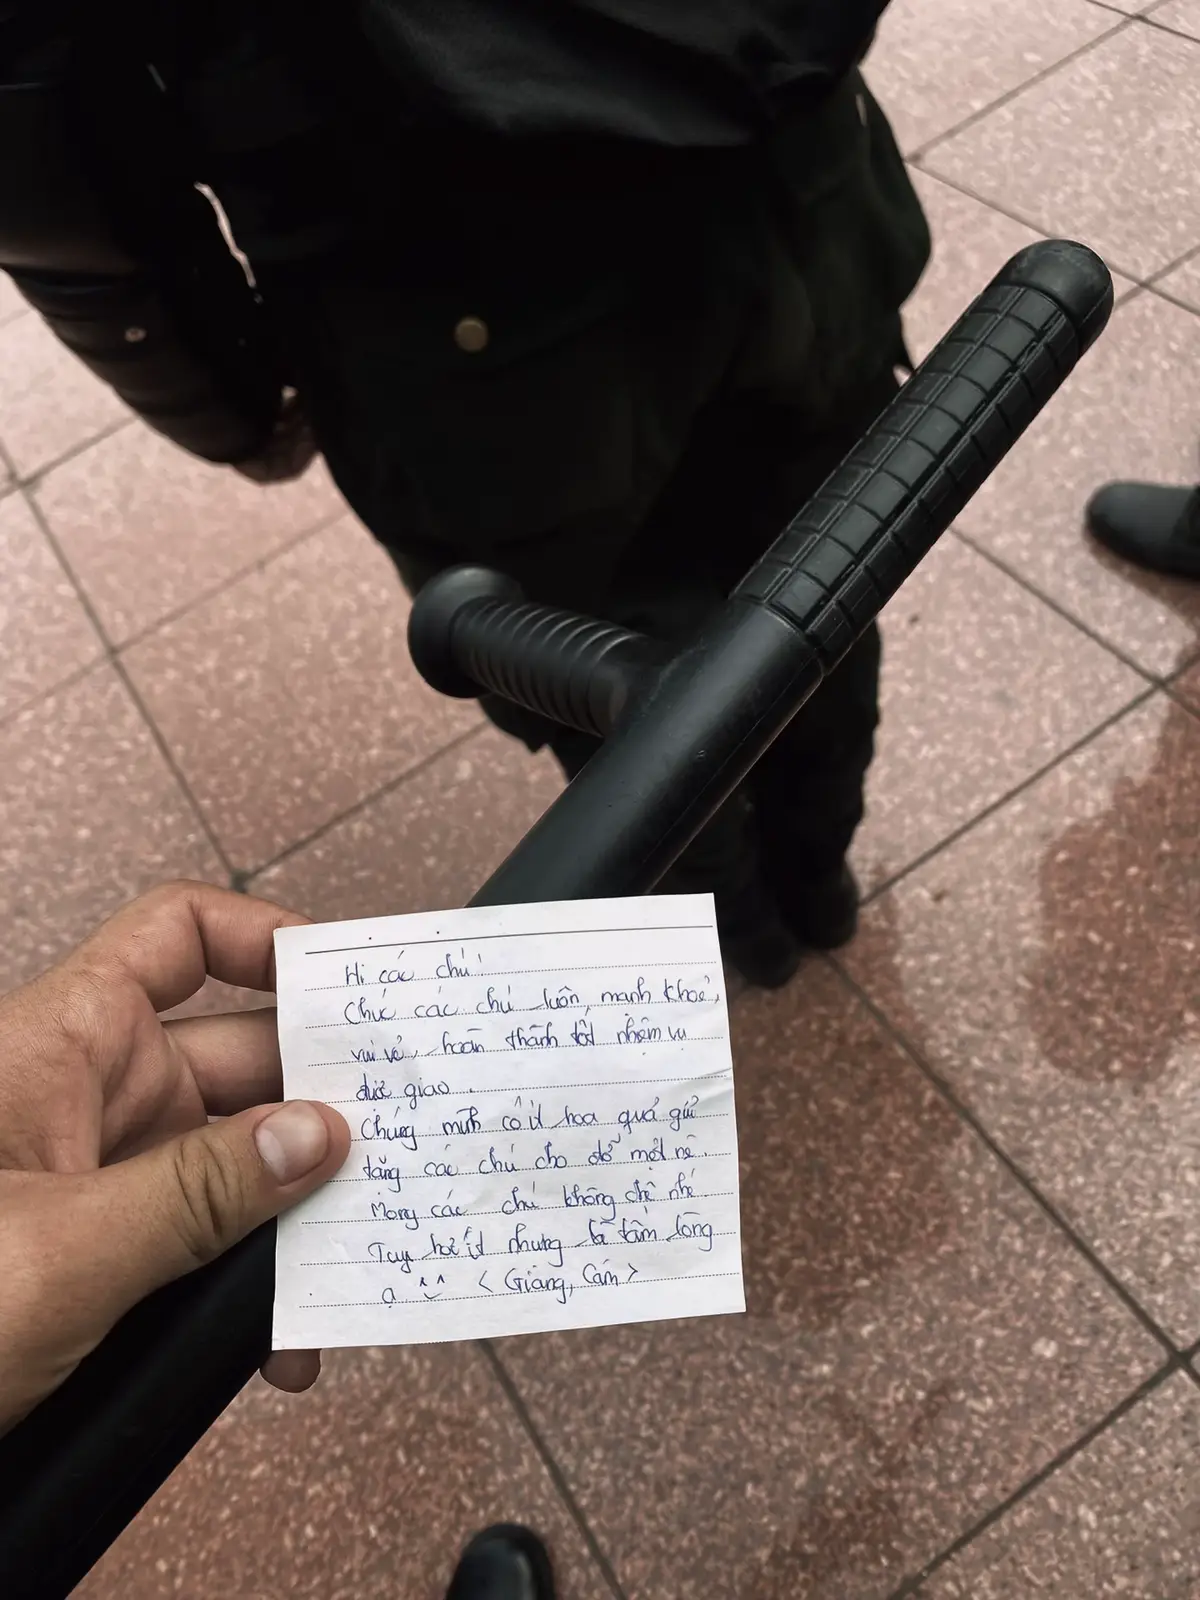 Hi các chú!
Chúc các chú luôn mạnh khoẻ,
vui vẻ, hoàn thành tốt nhiệm vụ
được giao.
Chúng mình có ít hoa quả gửi
tặng các chú cho đỡ mệt nè.
Mong các chú không chê nhé.
Tuy hơi ít nhưng là tấm lòng
ạ ^‿^ < Giang, Cẩm >